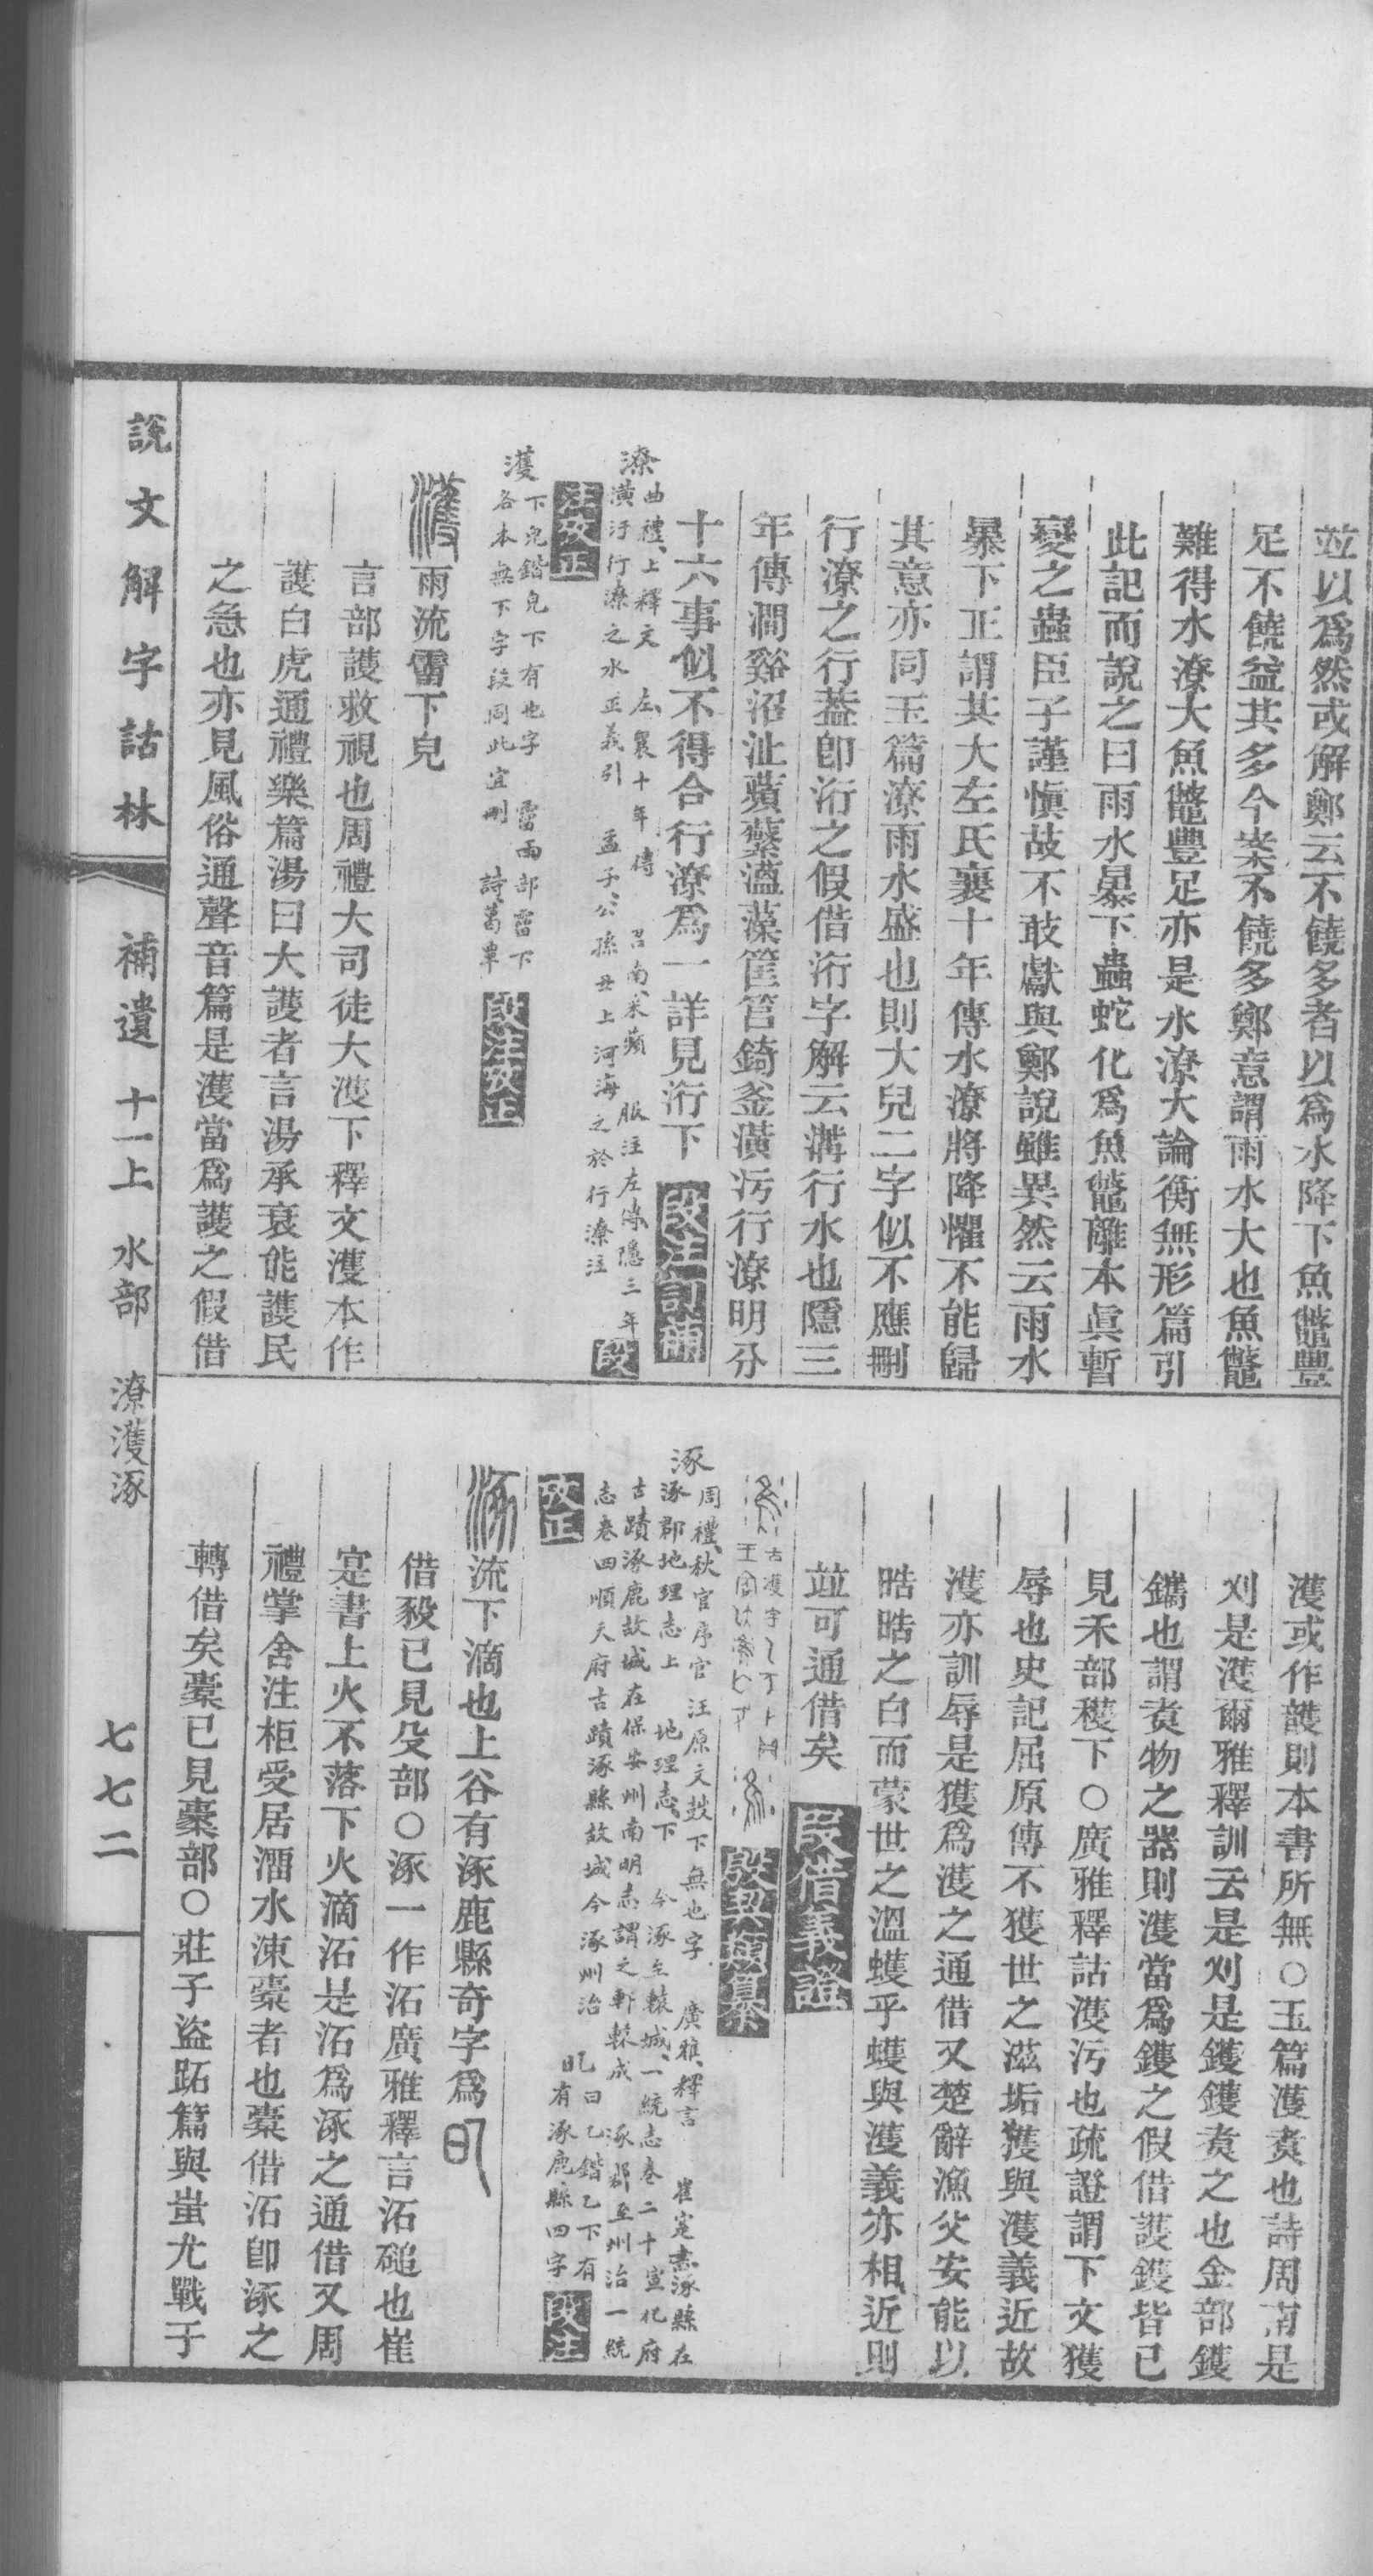 竝以爲然或解鄭云不饒多者以爲水降下魚鼈豐
足不饒益其多今案不饒多鄭意謂雨水大也魚鼈
難得水潦大魚鼈豐足亦是水潦大論衡無形篇引
此記而說之曰雨水暴下蟲蛇化爲魚鼈離本眞暫
變之蟲臣子謹愼故不敢獻與鄭說雖異然云雨水
暴下正謂其大左氏襄十年傳水潦將降懼不能歸
其意亦同玉篇潦雨水盛也則大皃二字似不應刪
行潦之行葢卽洐之假借洐字解云溝行水也隱三
年傳澗谿沼沚蘋蘩薀藻筐筥錡釜潢汚行潦明分
十六事似不得合行潦爲一詳見洐下 段注訂補
潦 曲禮上釋文 左襄十年傳 召南采蘋 服注左傳隱三年
潢汙行潦之水正義引 孟子公孫丑上河海之於行潦注 段
注攷正
濩 下皃鍇皃下有也字 霤雨部霤下
各本無下字段同此宜刪 詩葛覃 段注攷正
濩 雨流霤下皃
言部護救視也周禮大司徒大濩下釋文濩本作
護白虎通禮樂篇湯曰大護者言湯承衰能護民
之急也亦見風俗通聲音篇是濩當爲護之假借
濩或作頀則本書所無○玉篇濩煑也詩周南是
刈是濩爾雅釋訓云是刈是鑊鑊煑之也金部鑊
鑴也謂煑物之器則濩當爲鑊之假借護鑊皆已
見禾部穫下○廣雅釋詁濩污也疏證謂下文獲
辱也史記屈原傳不獲世之滋垢獲與濩義近故
濩亦訓辱是獲爲濩之通借又楚辭漁父安能以
晧晧之白而蒙世之溫蠖乎蠖與濩義亦相近則
竝可通借矣 段借義證
古濩字
殷契類纂
涿 周禮秋官序官注原文鼓下無也字 廣雅釋言 崔寔志涿縣在
涿郡地理志上 地理志下 今涿至轅城一統志卷二十宣化府
古蹟涿鹿故城在保安州南明志謂之軒轅成 涿郡至州治一統
志卷四順天府古蹟涿縣故城今涿州治 曰乙鍇乙下有
有涿鹿縣四字 段注
攷正
涿 流下滴也上谷有涿鹿縣奇字爲
借毅已見殳部○涿一作沰廣雅釋言沰磓也崔
寔書上火不落下火滴沰是沰爲涿之通借又周
禮掌舍注柜受居溜水涑橐者也橐借沰卽涿之
轉借矣橐已見㯻部○莊子盜跖篇與蚩尤戰于
說文解字詁林 補遺 十一上 水部 潦濩涿 七七二